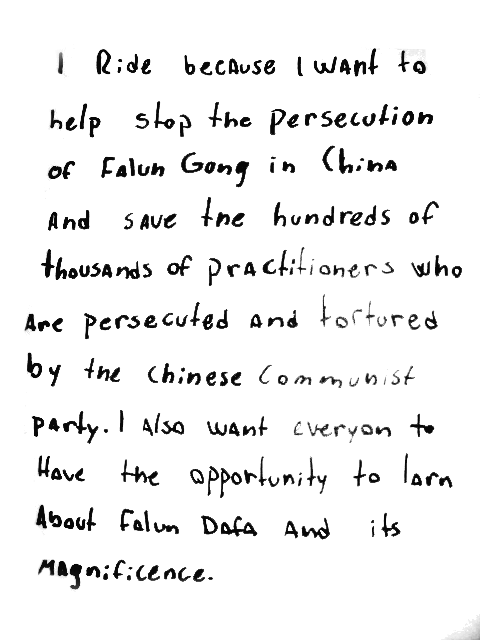 I Ride because I want to
help stop the persecution
of Falun Gong in China
and save the hundreds of
thousands of practitioners who
are persecuted and tortured
by the Chinese Communist
party. I Also want everyon to
Have the opportunity to larn
About Falun Dafa and its
magnificence.